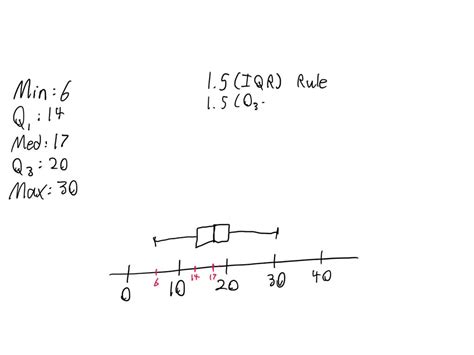 Min: 6
Q₁: 14
Med: 17
Q₃: 20
Max: 30
1.5(IQR) Rule
1.5(Q₃-
0 6 10 14 17 20 30 40